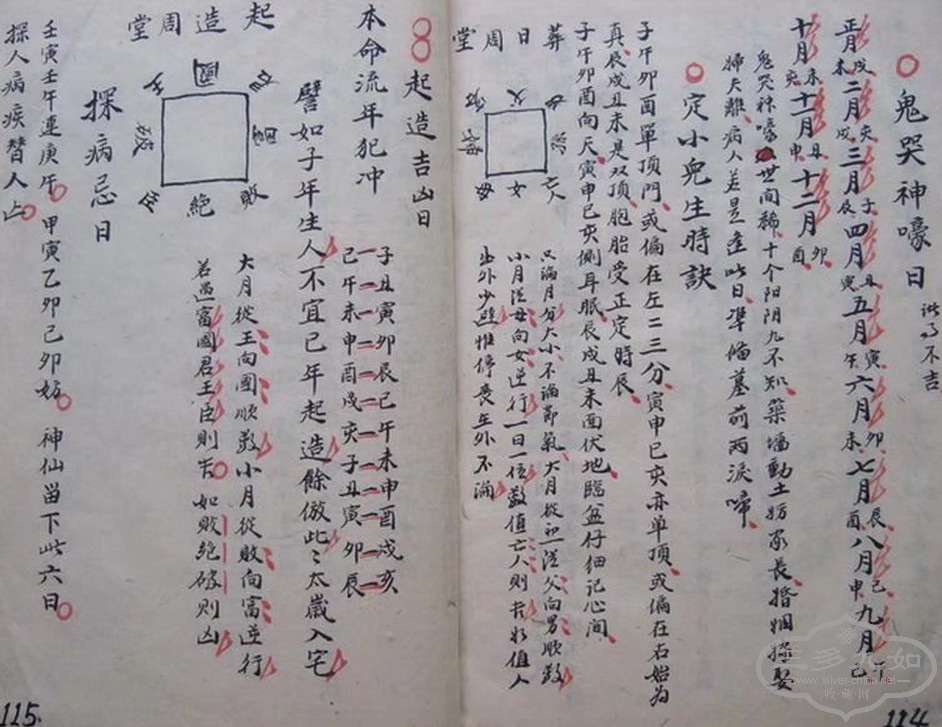 鬼哭神嚎日
諸事不吉
正月未戌二月戌亥三月辰子四月寅丑五月午寅六月未卯七月酉辰八月申巳九月巳午
十月亥未十一月申丑十二月酉卯
鬼哭神嚎世间稀十个阳阴九不知築墙動土妨家長婚姻嫁娶
婦夫離病人若是逢此日準偹墓前两淚啼
定小兒生時訣
子午卯酉單頂門或偏在左三三分寅申巳亥亦单頂或偏在右始为
真辰戌丑未是双頂胞胎受正定時辰
子午卯酉向天寅申巳亥側耳眠辰戌丑未面伏地臨盆仔细记心间
葬日周堂
父
女
亡人
只滿月分大小不論節氣大月從初一从父向男順数
小月从母向女逆行一日一位数值亡人則吉如值人
出外少避惟停丧在外不論
114
起造吉凶日
本命流年犯冲
子丑寅卯辰巳午未申酉戌亥
巳午未申酉戌亥子丑寅卯辰
譬如子年生人不宜巳年起造餘倣此三太歲入宅
起造周堂
國
敗
絕
大月從王向國順数小月從敗向富逆行
若遇富國君王臣則吉如敗絕破則凶
探病忌日
壬寅壬午連庚午甲寅乙卯己卯妨神仙留下此六日
探人病疾替人亡
115.
三多九如
www.silver-china.net
收藏网